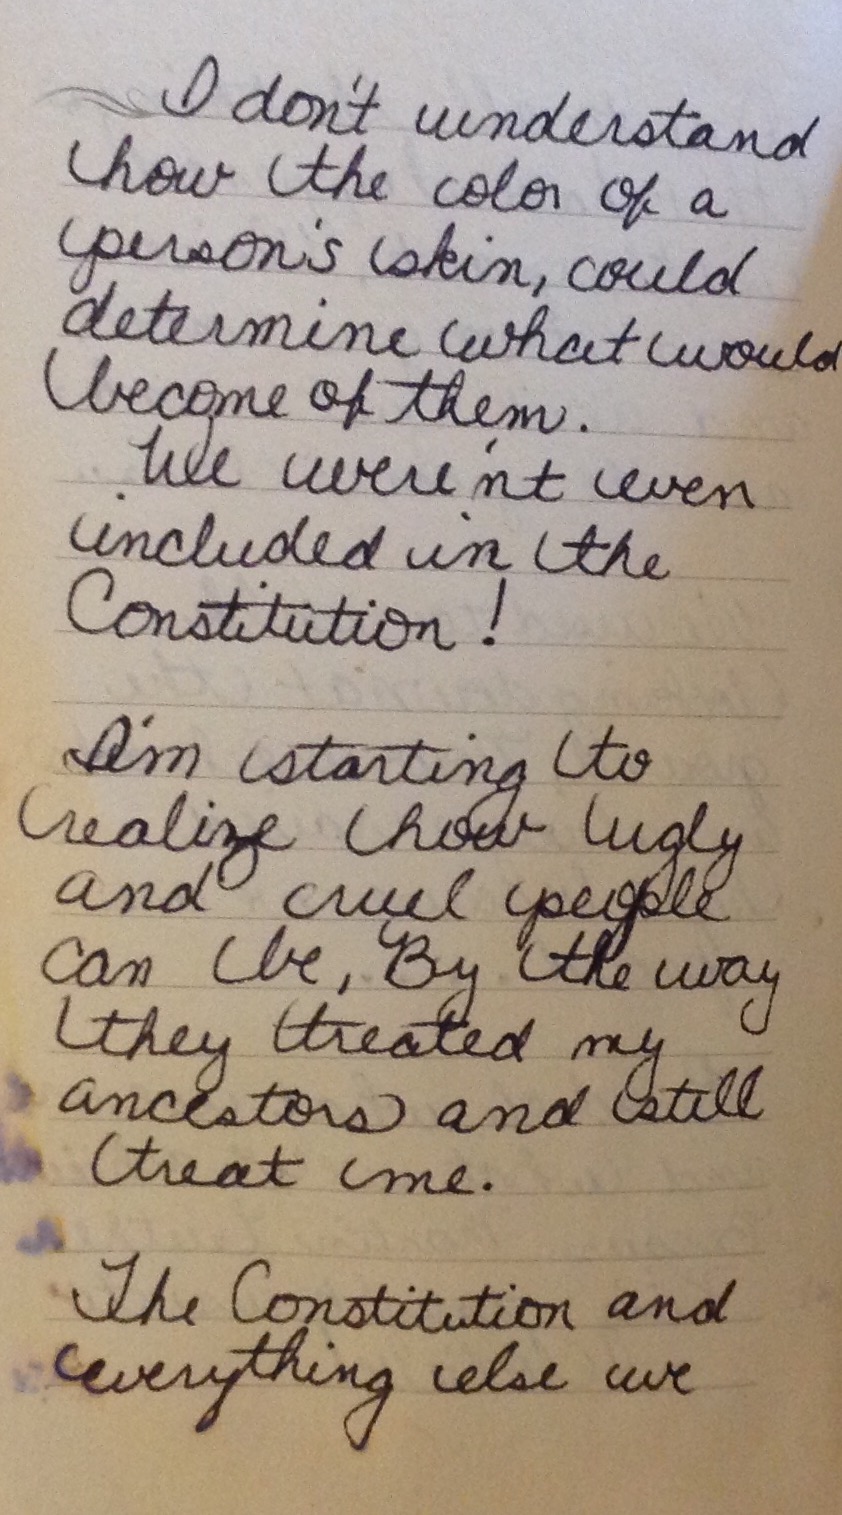 I don't understand
how the color of a
person's skin, could
determine what would
become of them.
We were'nt even
included in the
Constitution!
I'm starting to
realize how ugly
and cruel people
can be, By the way
they treated my
ancestors and still
treat me.
The Constitution and
everything else we